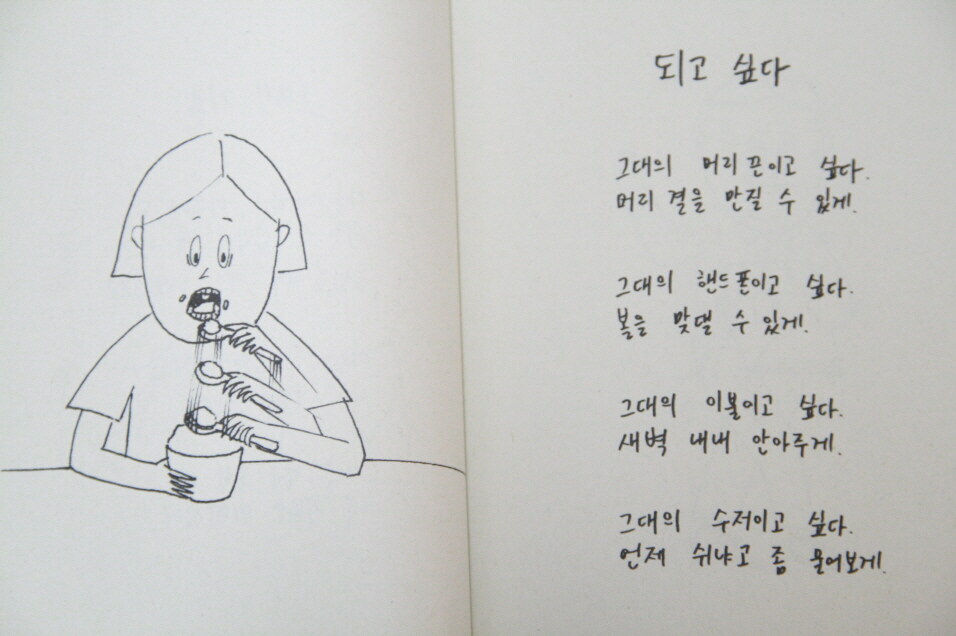 되고 싶다
그대의 머리끈이고 싶다.
머리 결을 만질 수 있게.
그대의 핸드폰이고 싶다.
볼을 맞댈 수 있게.
그대의 이불이고 싶다.
새벽 내내 안아주게.
그대의 수저이고 싶다.
언제 쉬냐고 좀 물어보게.